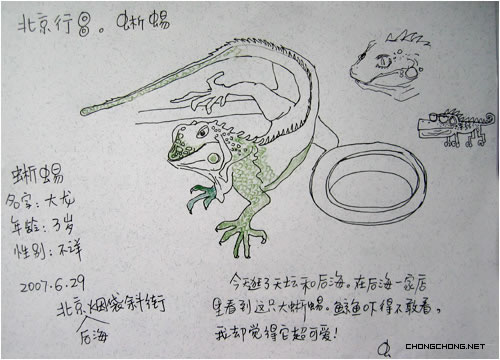 北京行⑧。蜥蜴
蜥蜴
名字：大龙
年龄：3岁
性别：不详
2007.6.29
北京烟袋斜街
后海
今天逛了天坛和后海。在后海一家店
里看到这只大蜥蜴。鲸鱼吓得不敢看，
我却觉得它超可爱！
CHONGCHONG.NET